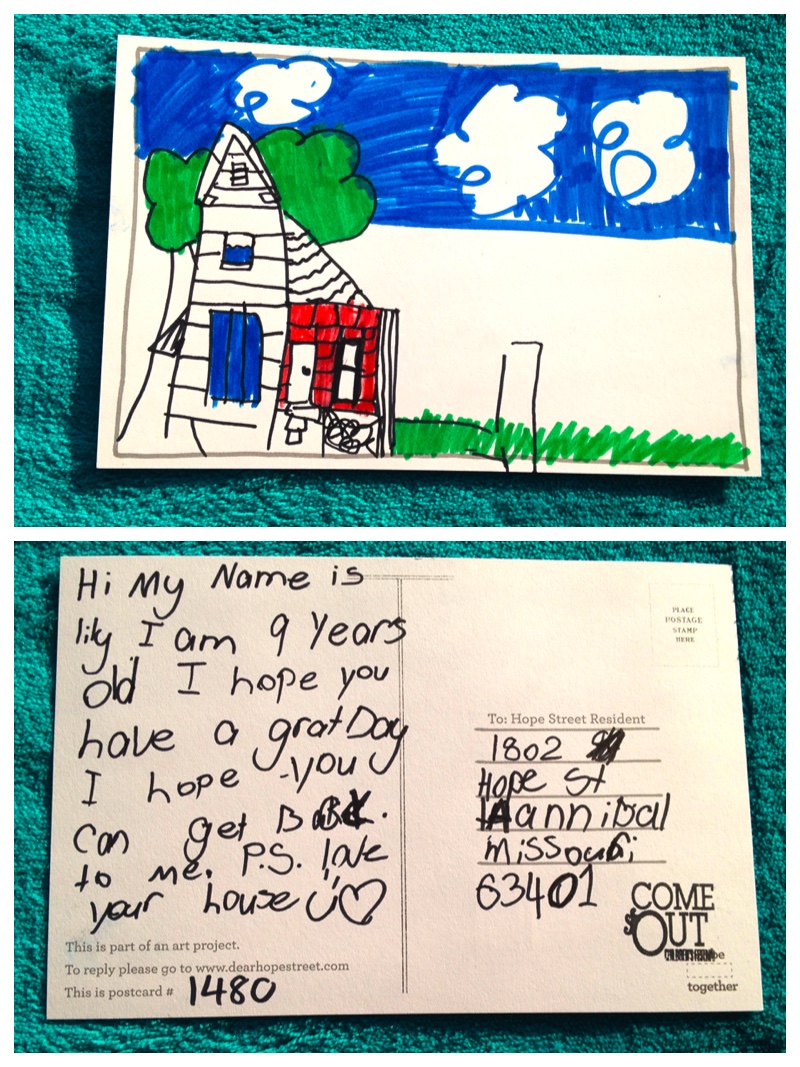 Hi My Name is
lily I am 9 Years
old I hope you
have a grat Day
I hope you
can get Back.
to me. P.S. love
your house
This is part of an art project.
To reply please go to www.dearhopestreet.com
This is postcard # 1480
PLACE
POSTAGE
STAMP
HERE
To: Hope Street Resident
1802
Hope St
Hannibal
Missouri
63401
COME
OUT
together